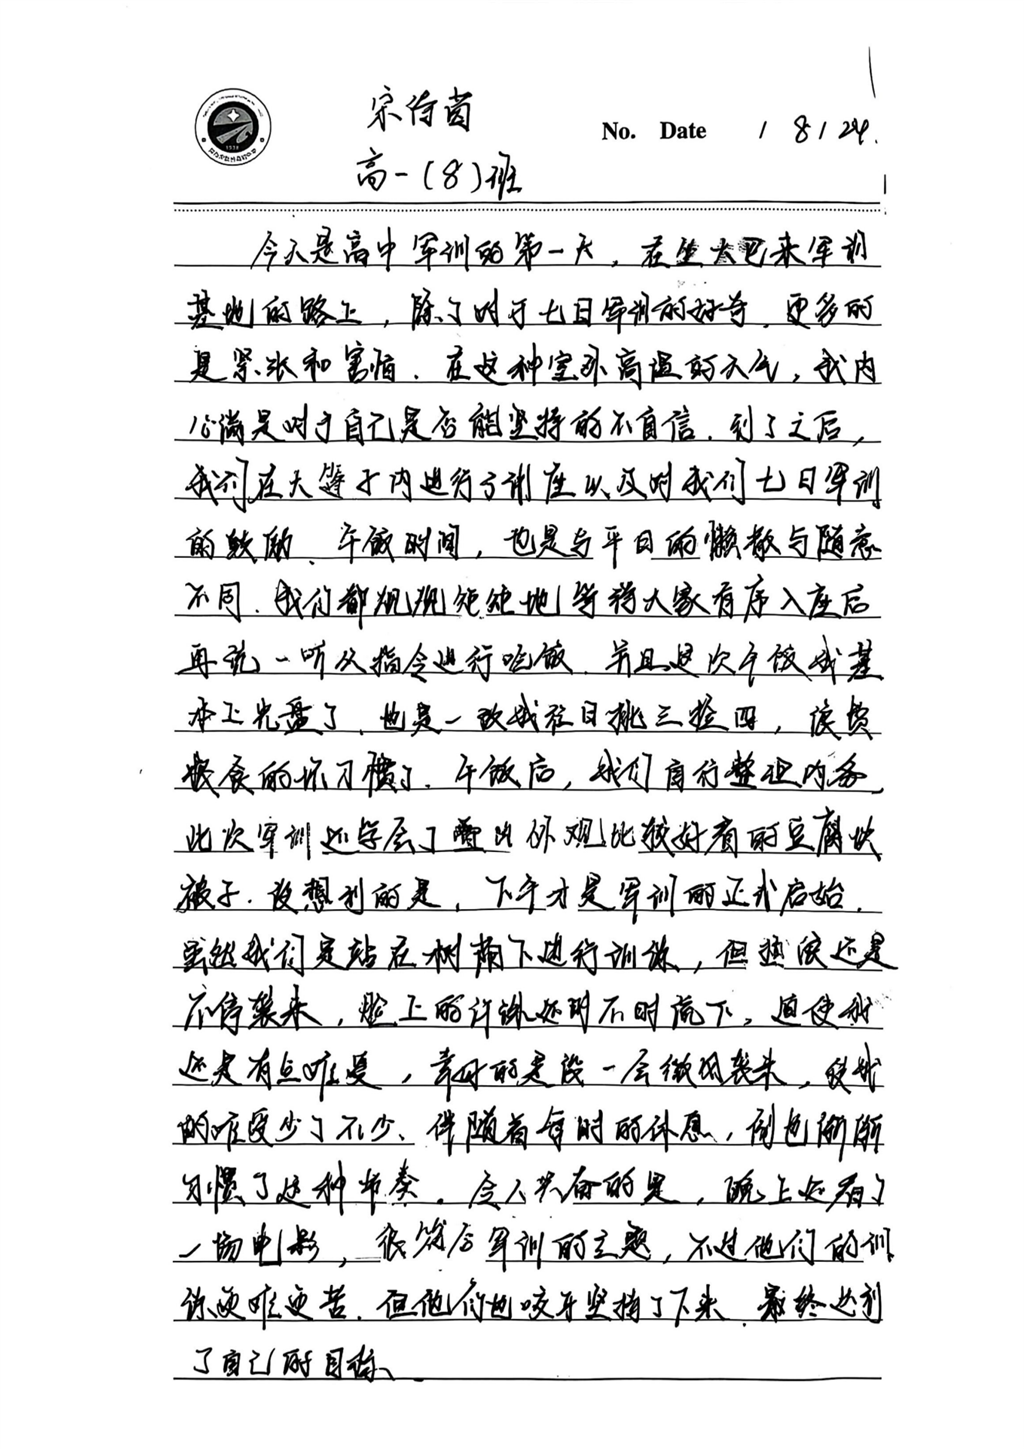 宋诗茵
No. Date / 8 / 24.
高一(8)班
今天是高中军训的第一天，在坐大巴来军训
基地的路上，除了对于七日军训的好奇，更多的
是紧张和害怕．在这种室外高温的天气，我内
心满是对于自己是否能坚持的不自信．到了之后，
我们在大篷子内进行了讲座以及对我们七日军训
的鼓励．午饭时间，也是与平日的懒散与随意
不同．我们都规规矩矩地等待大家有序入座后
再说一听从指令进行吃饭．并且这次午饭我基
本上光盘了．也是一改我往日挑三捡四，浪费
粮食的坏习惯了．午饭后，我们自行整理内务，
此次军训还学会了叠出外观比较好看的豆腐块
被子．没想到的是，下午才是军训的正式启始．
虽然我们是站在树荫下进行训练，但热浪还是
不停袭来，脸上的汗珠还时不时流下，迫使我
还是有点难受，幸好的是没一会微风袭来，使我
的难受少了不少．伴随着每时的休息，倒也渐渐
习惯了这种节奏．令人兴奋的是，晚上还看了
一场电影，很符合军训的主题，不过他们的训
练更难更苦．但他们也咬牙坚持了下来．最终达到
了自己的目标．